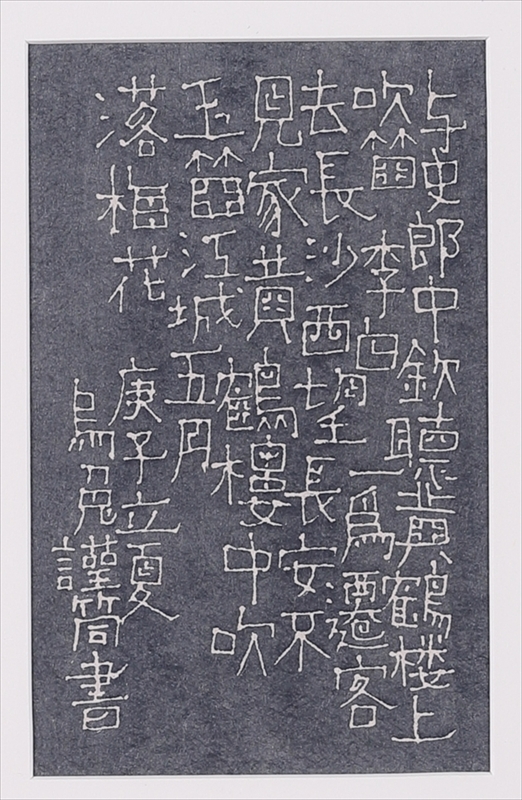 与史郎中欽聴黄鶴楼上
吹笛 李白 一為遷客
去長沙西望長安不
見家黄鶴樓中吹
玉笛江城五月
落梅花 庚子立夏
烏兎謹筒書